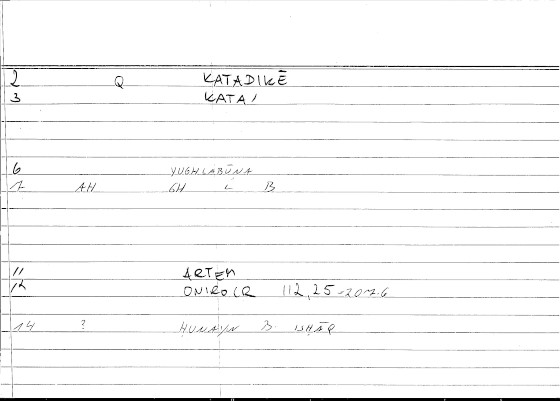 2 Q KATADIKĒ
3 KATA/
6 YUGHLABŪNA
7 AH GH L B
11 ARTEM
12 ONIROCR 112,25-207.6
14 ? ḤUNAYN B. ISḤĀQ